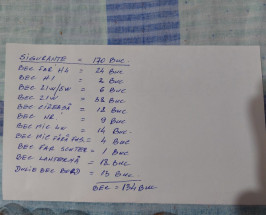 SIGURANTE = 170 BUC.
BEC FAR H4 = 24 BUC
BEC H1 = 2 BUC
BEC 21W/5W = 6 BUC
BEC 21W = 32 BUC
BEC = 12 BUC
BEC NR. = 9 BUC
BEC MIC 4W = 14 BUC.
BEC MIC FĂRĂ = 4 BUC
BEC FAR = 1 BUC
BEC LANTERNĂ = 12 BUC.
BEC BORD = 15 BUC.
BEC = 134 BUC